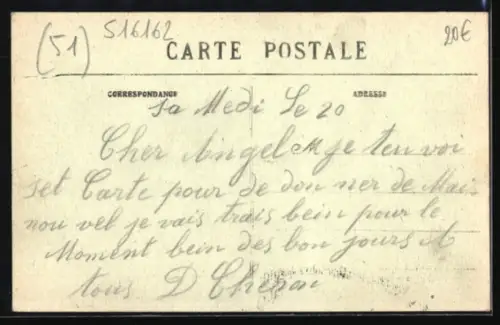 (51) 516162 20€
CARTE POSTALE
CORRESPONDANCE ADRESSE
Sa Medi Le 20
Cher Angel je ten voi
set Carte pour de don ner de Mais
nou vel je vais trais bein pour le
Moment bein des bon jours A
tous D Cheron